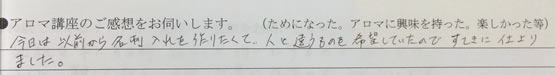 ●アロマ講座のご感想をお伺いします。　（ためになった。アロマに興味を持った。楽しかった等）
今日は以前から名刺入れを作りたくて、人と違うものを希望していたので すてきに仕上り
ました。